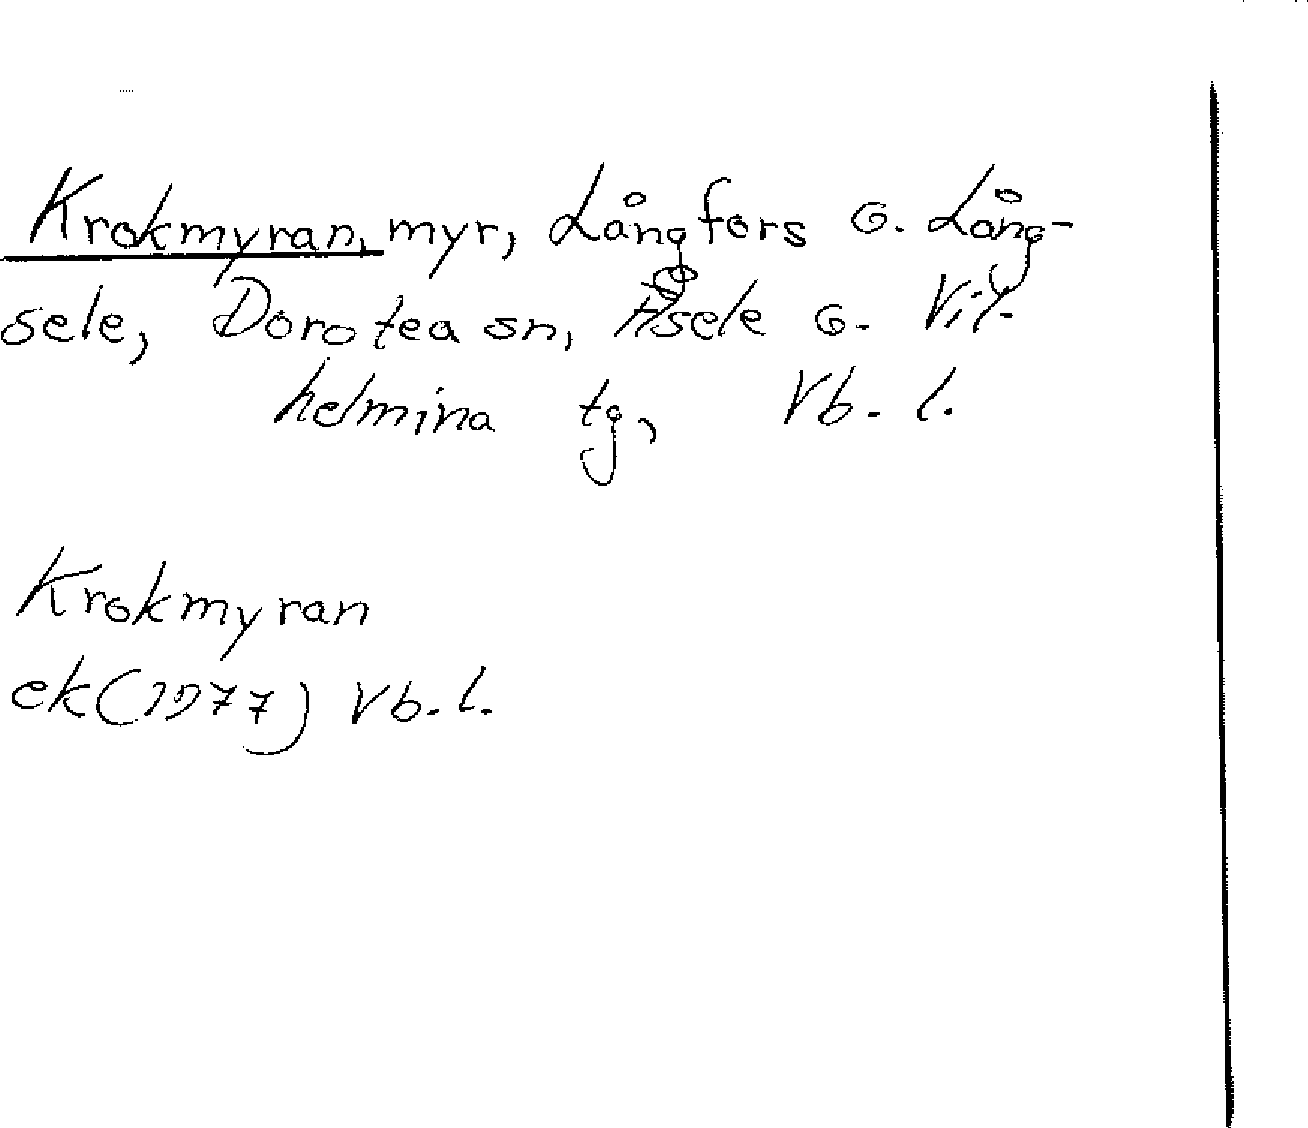 Krokmyran, myr, Långfors o. Lång-
sele, Dorotea sn, Åsele o. Vil-
helmina tg, Vb. l.
Krokmyran
ek (1977) Vb. l.